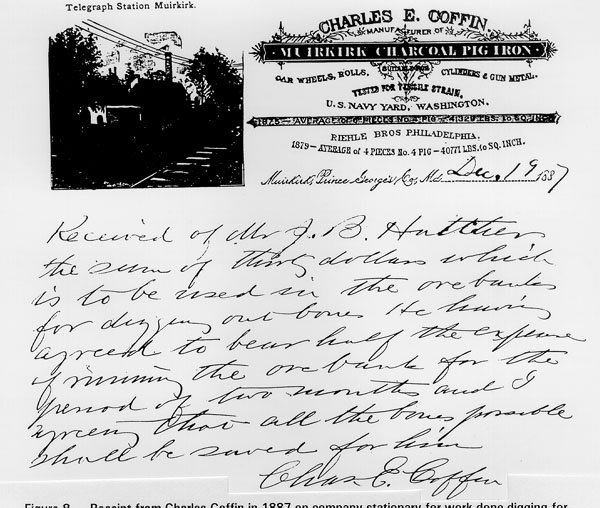 Telegraph Station Muirkirk.
CHARLES E. COFFIN,
MANUFACTURER OF
MUIRKIRK CHARCOAL PIG IRON
SUITABLE FOR
CAR WHEELS, ROLLS, CYLINDERS & GUN METAL.
TESTED FOR TENSILE STRAIN,
U.S. NAVY YARD, WASHINGTON.
1875 – AVERAGE OF 6 PIECES No. 4 PIG – LBS. TO SQ. INCH.
RIEHLE BROS PHILADELPHIA.
1879 – AVERAGE of 4 PIECES No. 4 PIG – 40771 LBS. to SQ. INCH.
Muirkirk, Prince George's Co., Md. Dec. 19 1887
Received of Mr J. B. Hatcher
the sum of thirty dollars which
is to be used in the orebanks
for digging out bones He having
agreed to bear half the expense
of running the orebank for the
period of two months and I
agreeing that all the bones possible
shall be saved for him
Chas. E. Coffin
Figure 9. Receipt from Charles Coffin in 1887 on company stationary for work done digging for